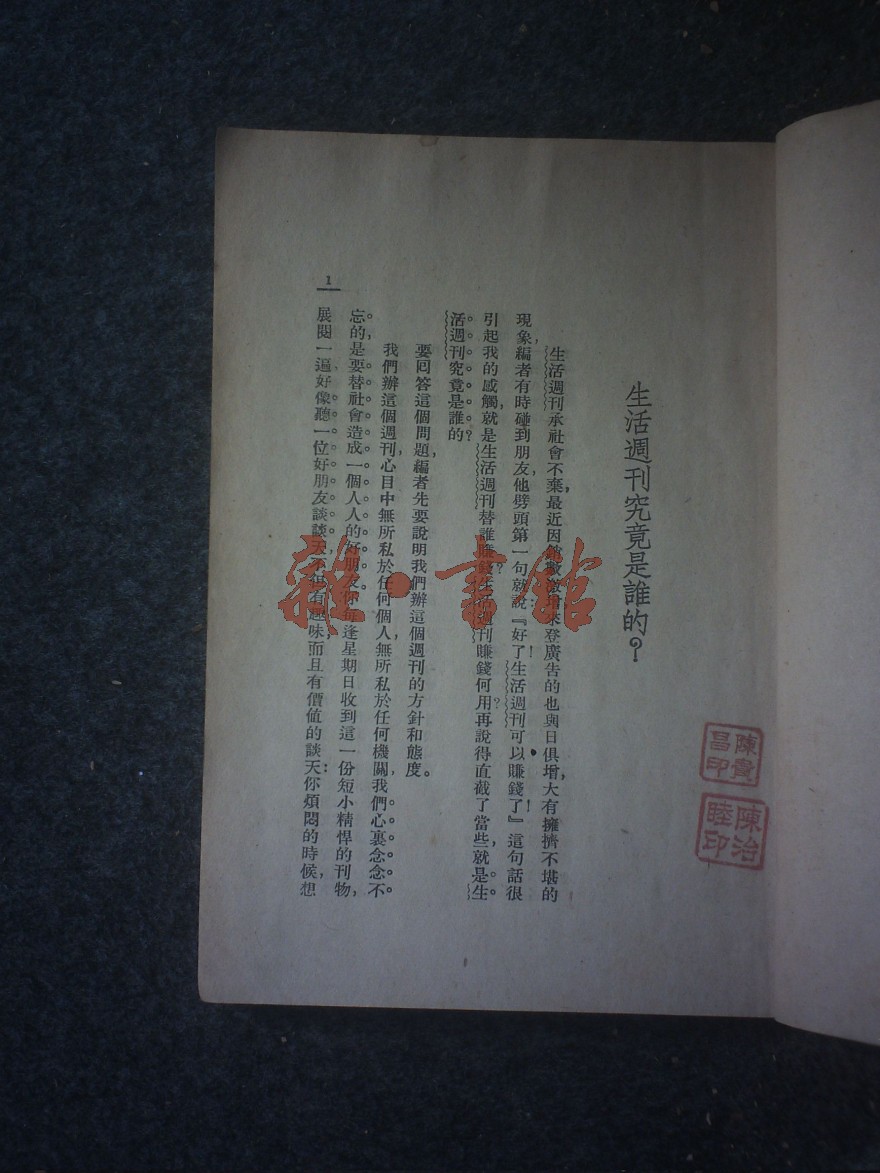 生活週刊究竟是誰的？
生活週刊承社會不棄，最近因銷數激增，來登廣告的也與日俱增，大有擁擠不堪的
現象，編者有時碰到朋友，他劈頭第一句就說『好了！生活週刊可以賺錢了！』這句話很
引起我的感觸，就是生活週刊替誰賺錢？生活週刊賺錢何用？再說得直截了當些，就是生
活週刊究竟是誰的？
要回答這個問題，編者先要說明我們辦這個週刊的方針和態度。
我們辦這個週刊，心目中無所私於任何個人，無所私於任何機關，我們心裏念念不
忘的，是要替社會造成一個人人的好朋友，你每逢星期日收到這一份短小精悍的刊物，
展閱一遍，好像聽一位好朋友談談天，不但有趣味，而且有價值的談天：你煩悶的時候，想
1
陳貴昌印
陳治睦印
雜·書館